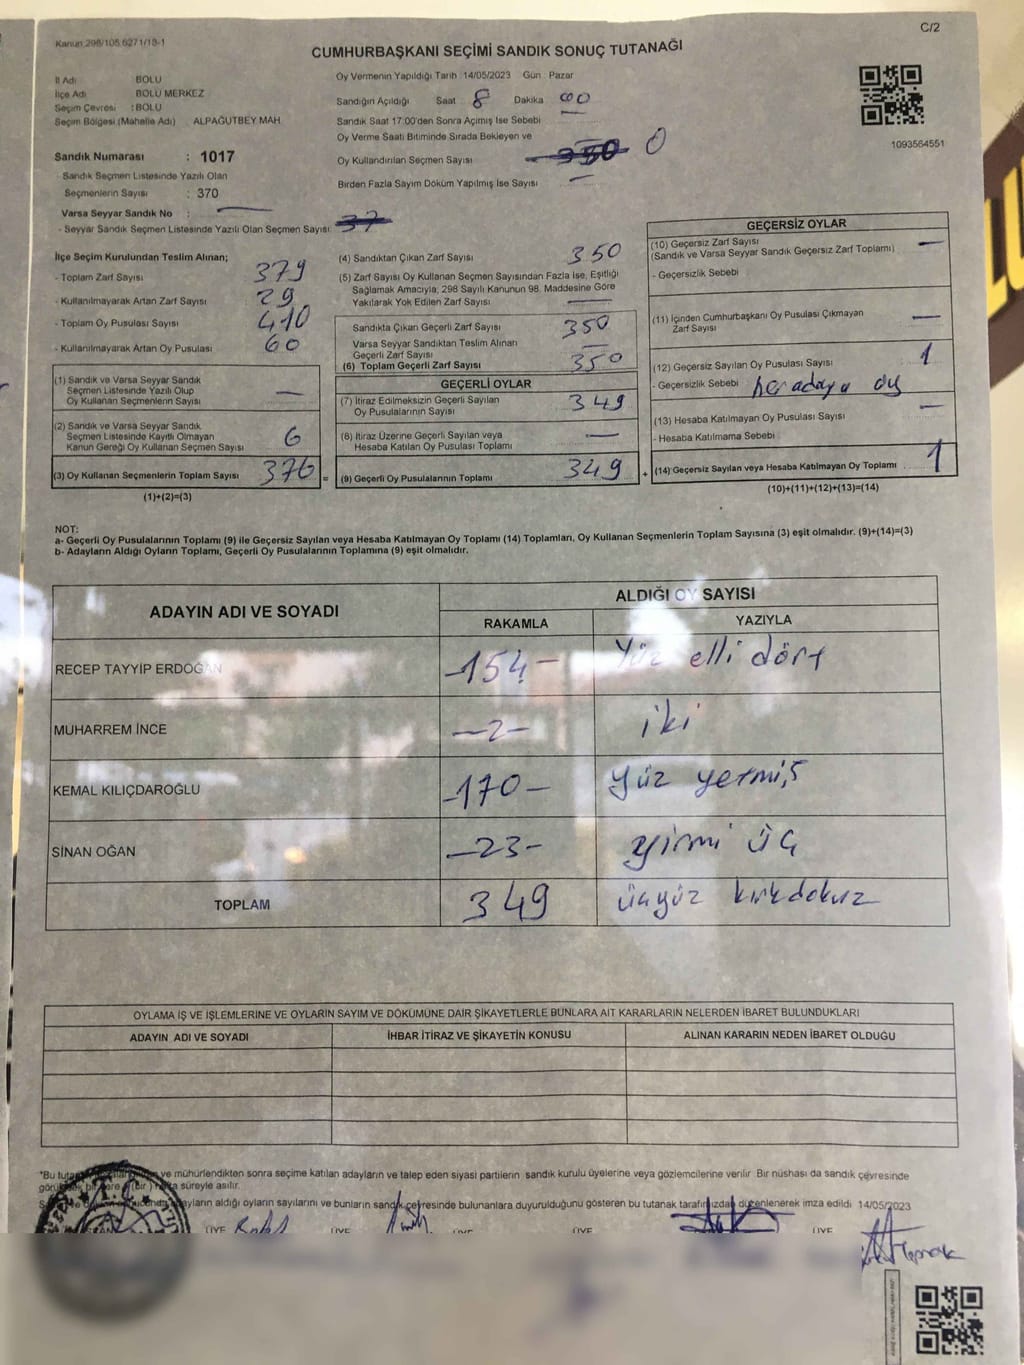 Kanun 298/105,6271/18-1
C/2
CUMHURBAŞKANI SEÇİMİ SANDIK SONUÇ TUTANAĞI
İl Adı BOLU
İlçe Adı BOLU MERKEZ
Seçim Çevresi : BOLU
Seçim Bölgesi (Mahalle Adı) ALPAĞUTBEY MAH
Sandık Numarası : 1017
- Sandık Seçmen Listesinde Yazılı Olan
Seçmenlerin Sayısı : 370
Varsa Seyyar Sandık No :
- Seyyar Sandık Seçmen Listesinde Yazılı Olan Seçmen Sayısı: 37
Oy Vermenin Yapıldığı Tarih 14/05/2023 Gün : Pazar
Sandığın Açıldığı Saat 8 Dakika 00
Sandık Saat 17:00'den Sonra Açımış İse Sebebi
Oy Verme Saati Bitiminde Sırada Bekleyen ve
Oy Kullandırılan Seçmen Sayısı 350 0
Birden Fazla Sayım Döküm Yapılmış İse Sayısı —
1093564551
İlçe Seçim Kurulundan Teslim Alınan;
- Toplam Zarf Sayısı 379
- Kullanılmayarak Artan Zarf Sayısı 29
- Toplam Oy Pusulası Sayısı 410
- Kullanılmayarak Artan Oy Pusulası 60
(1) Sandık ve Varsa Seyyar Sandık
Seçmen Listesinde Yazılı Olup
Oy Kullanan Seçmenlerin Sayısı —
(2) Sandık ve Varsa Seyyar Sandık
Seçmen Listesinde Kayıtlı Olmayan
Kanun Gereği Oy Kullanan Seçmen Sayısı 6
(3) Oy Kullanan Seçmenlerin Toplam Sayısı 376 =
(1)+(2)=(3)
(4) Sandıktan Çıkan Zarf Sayısı 350
(5) Zarf Sayısı Oy Kullanan Seçmen Sayısından Fazla İse, Eşitliği
Sağlamak Amacıyla, 298 Sayılı Kanunun 98. Maddesine Göre
Yakılarak Yok Edilen Zarf Sayısı —
Sandıkta Çıkan Geçerli Zarf Sayısı 350
Varsa Seyyar Sandıktan Teslim Alınan
Geçerli Zarf Sayısı
(6) Toplam Geçerli Zarf Sayısı 350
GEÇERLİ OYLAR
(7) İtiraz Edilmeksizin Geçerli Sayılan
Oy Pusulalarının Sayısı 349
(8) İtiraz Üzerine Geçerli Sayılan veya
Hesaba Katılan Oy Pusulası Toplamı —
(9) Geçerli Oy Pusulalarının Toplamı 349 +
GEÇERSİZ OYLAR
(10) Geçersiz Zarf Sayısı —
(Sandık ve Varsa Seyyar Sandık Geçersiz Zarf Toplamı)
- Geçersizlik Sebebi
(11) İçinden Cumhurbaşkanı Oy Pusulası Çıkmayan
Zarf Sayısı —
(12) Geçersiz Sayılan Oy Pusulası Sayısı 1
- Geçersizlik Sebebi her adaya oy
(13) Hesaba Katılmayan Oy Pusulası Sayısı —
- Hesaba Katılmama Sebebi
(14) Geçersiz Sayılan veya Hesaba Katılmayan Oy Toplamı 1
(10)+(11)+(12)+(13)=(14)
NOT:
a- Geçerli Oy Pusulalarının Toplamı (9) ile Geçersiz Sayılan veya Hesaba Katılmayan Oy Toplamı (14) Toplamları, Oy Kullanan Seçmenlerin Toplam Sayısına (3) eşit olmalıdır. (9)+(14)=(3)
b- Adayların Aldığı Oyların Toplamı, Geçerli Oy Pusulalarının Toplamına (9) eşit olmalıdır.
ADAYIN ADI VE SOYADI ALDIĞI OY SAYISI
RAKAMLA YAZIYLA
RECEP TAYYİP ERDOĞAN -154- Yüz elli dört
MUHARREM İNCE -2- iki
KEMAL KILIÇDAROĞLU -170- Yüz yetmiş
SİNAN OĞAN -23- yirmi üç
TOPLAM 349 üçyüz kırkdokuz
OYLAMA İŞ VE İŞLEMLERİNE VE OYLARIN SAYIM VE DÖKÜMÜNE DAİR ŞİKAYETLERLE BUNLARA AİT KARARLARIN NELERDEN İBARET BULUNDUKLARI
ADAYIN ADI VE SOYADI İHBAR İTİRAZ VE ŞİKAYETİN KONUSU ALINAN KARARIN NEDEN İBARET OLDUĞU
ve mühürlendikten sonra seçime katılan adayların ve talep eden siyasi partilerin sandık kurulu üyelerine veya gözlemcilerine verilir. Bir nüshası da sandık çevresinde
süreyle asılır.
adayların aldığı oyların sayılarını ve bunların sandık çevresinde bulunanlara duyurulduğunu gösteren bu tutanak tarafımızdan düzenlenerek imza edildi 14/05/2023
T.C.
ÜYE ÜYE ÜYE ÜYE ÜYE